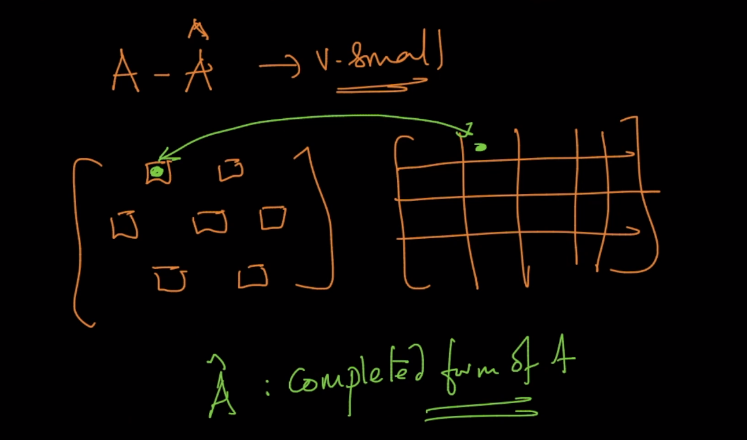 A - Â → v. small
Â : completed form of A